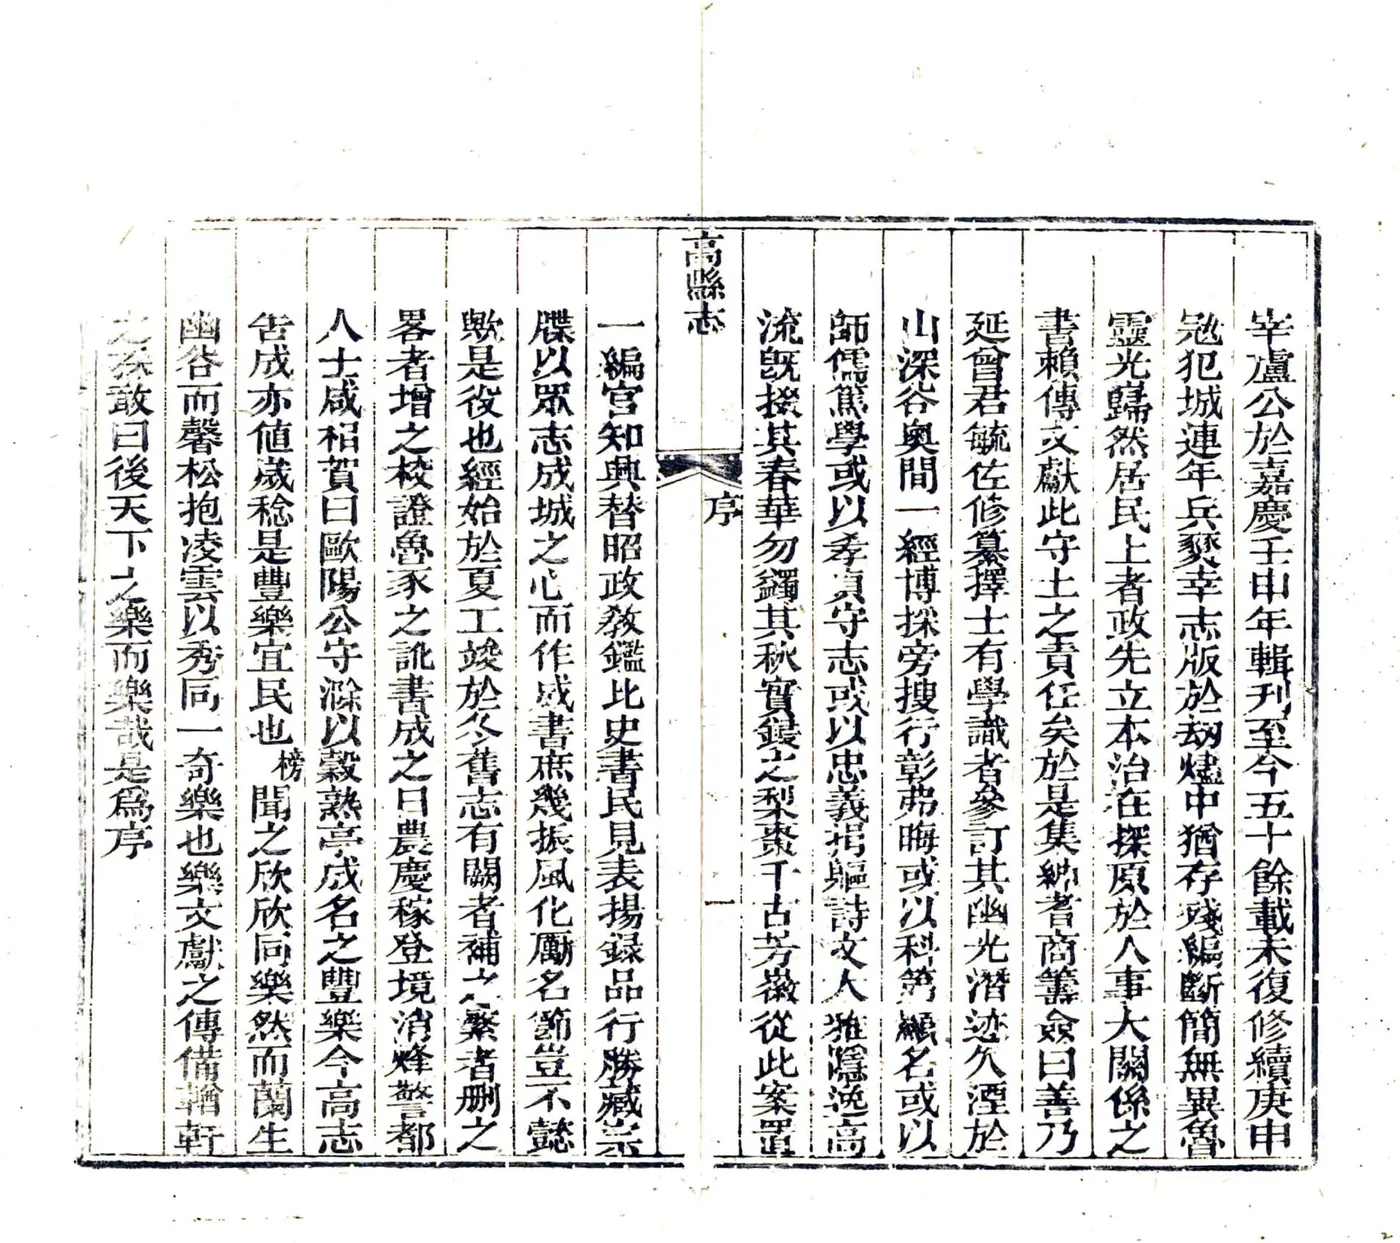 宰盧公於嘉慶壬申年輯刊至今五十餘載未復修續庚申
冦犯城連年兵燹幸志版於刼燼中猶存殘編斷簡無異魯
靈光巋然居民上者政先立本治在探原於人事大關係之
書賴傳文獻此守土之責任矣於是集紳耆商籌僉曰善乃
延曾君毓佐修纂擇士有學識者叅訂其幽光潛迹久湮於
山深谷奥間一經博採旁搜行彰弗晦或以科第顯名或以
師儒篤學或以孝貞守志或以忠義捐軀詩文人雅隱逸高
流旣掇其春華勿蠲其秋實鋟之梨棗千古芳徽從此案置
高縣志
序
一
一編官知興替昭政教鑑比史書民見表揚録品行勝藏宗
牒以眾志成城之心而作成書庶幾振風化勵名節豈不懿
歟是役也經始於夏工竣於冬舊志有闕者補之繁者刪之
畧者增之校證魯豕之訛書成之日農慶稼登境消烽警都
人士咸相賀曰歐陽公守滁以穀熟亭成名之豐樂今高志
告成亦値歲稔是豐樂宜民也榜聞之欣欣同樂然而蘭生
幽谷而馨松抱凌雲以秀同一奇樂也樂文獻之傳備輶軒
之採敢曰後天下之樂而樂哉是爲序